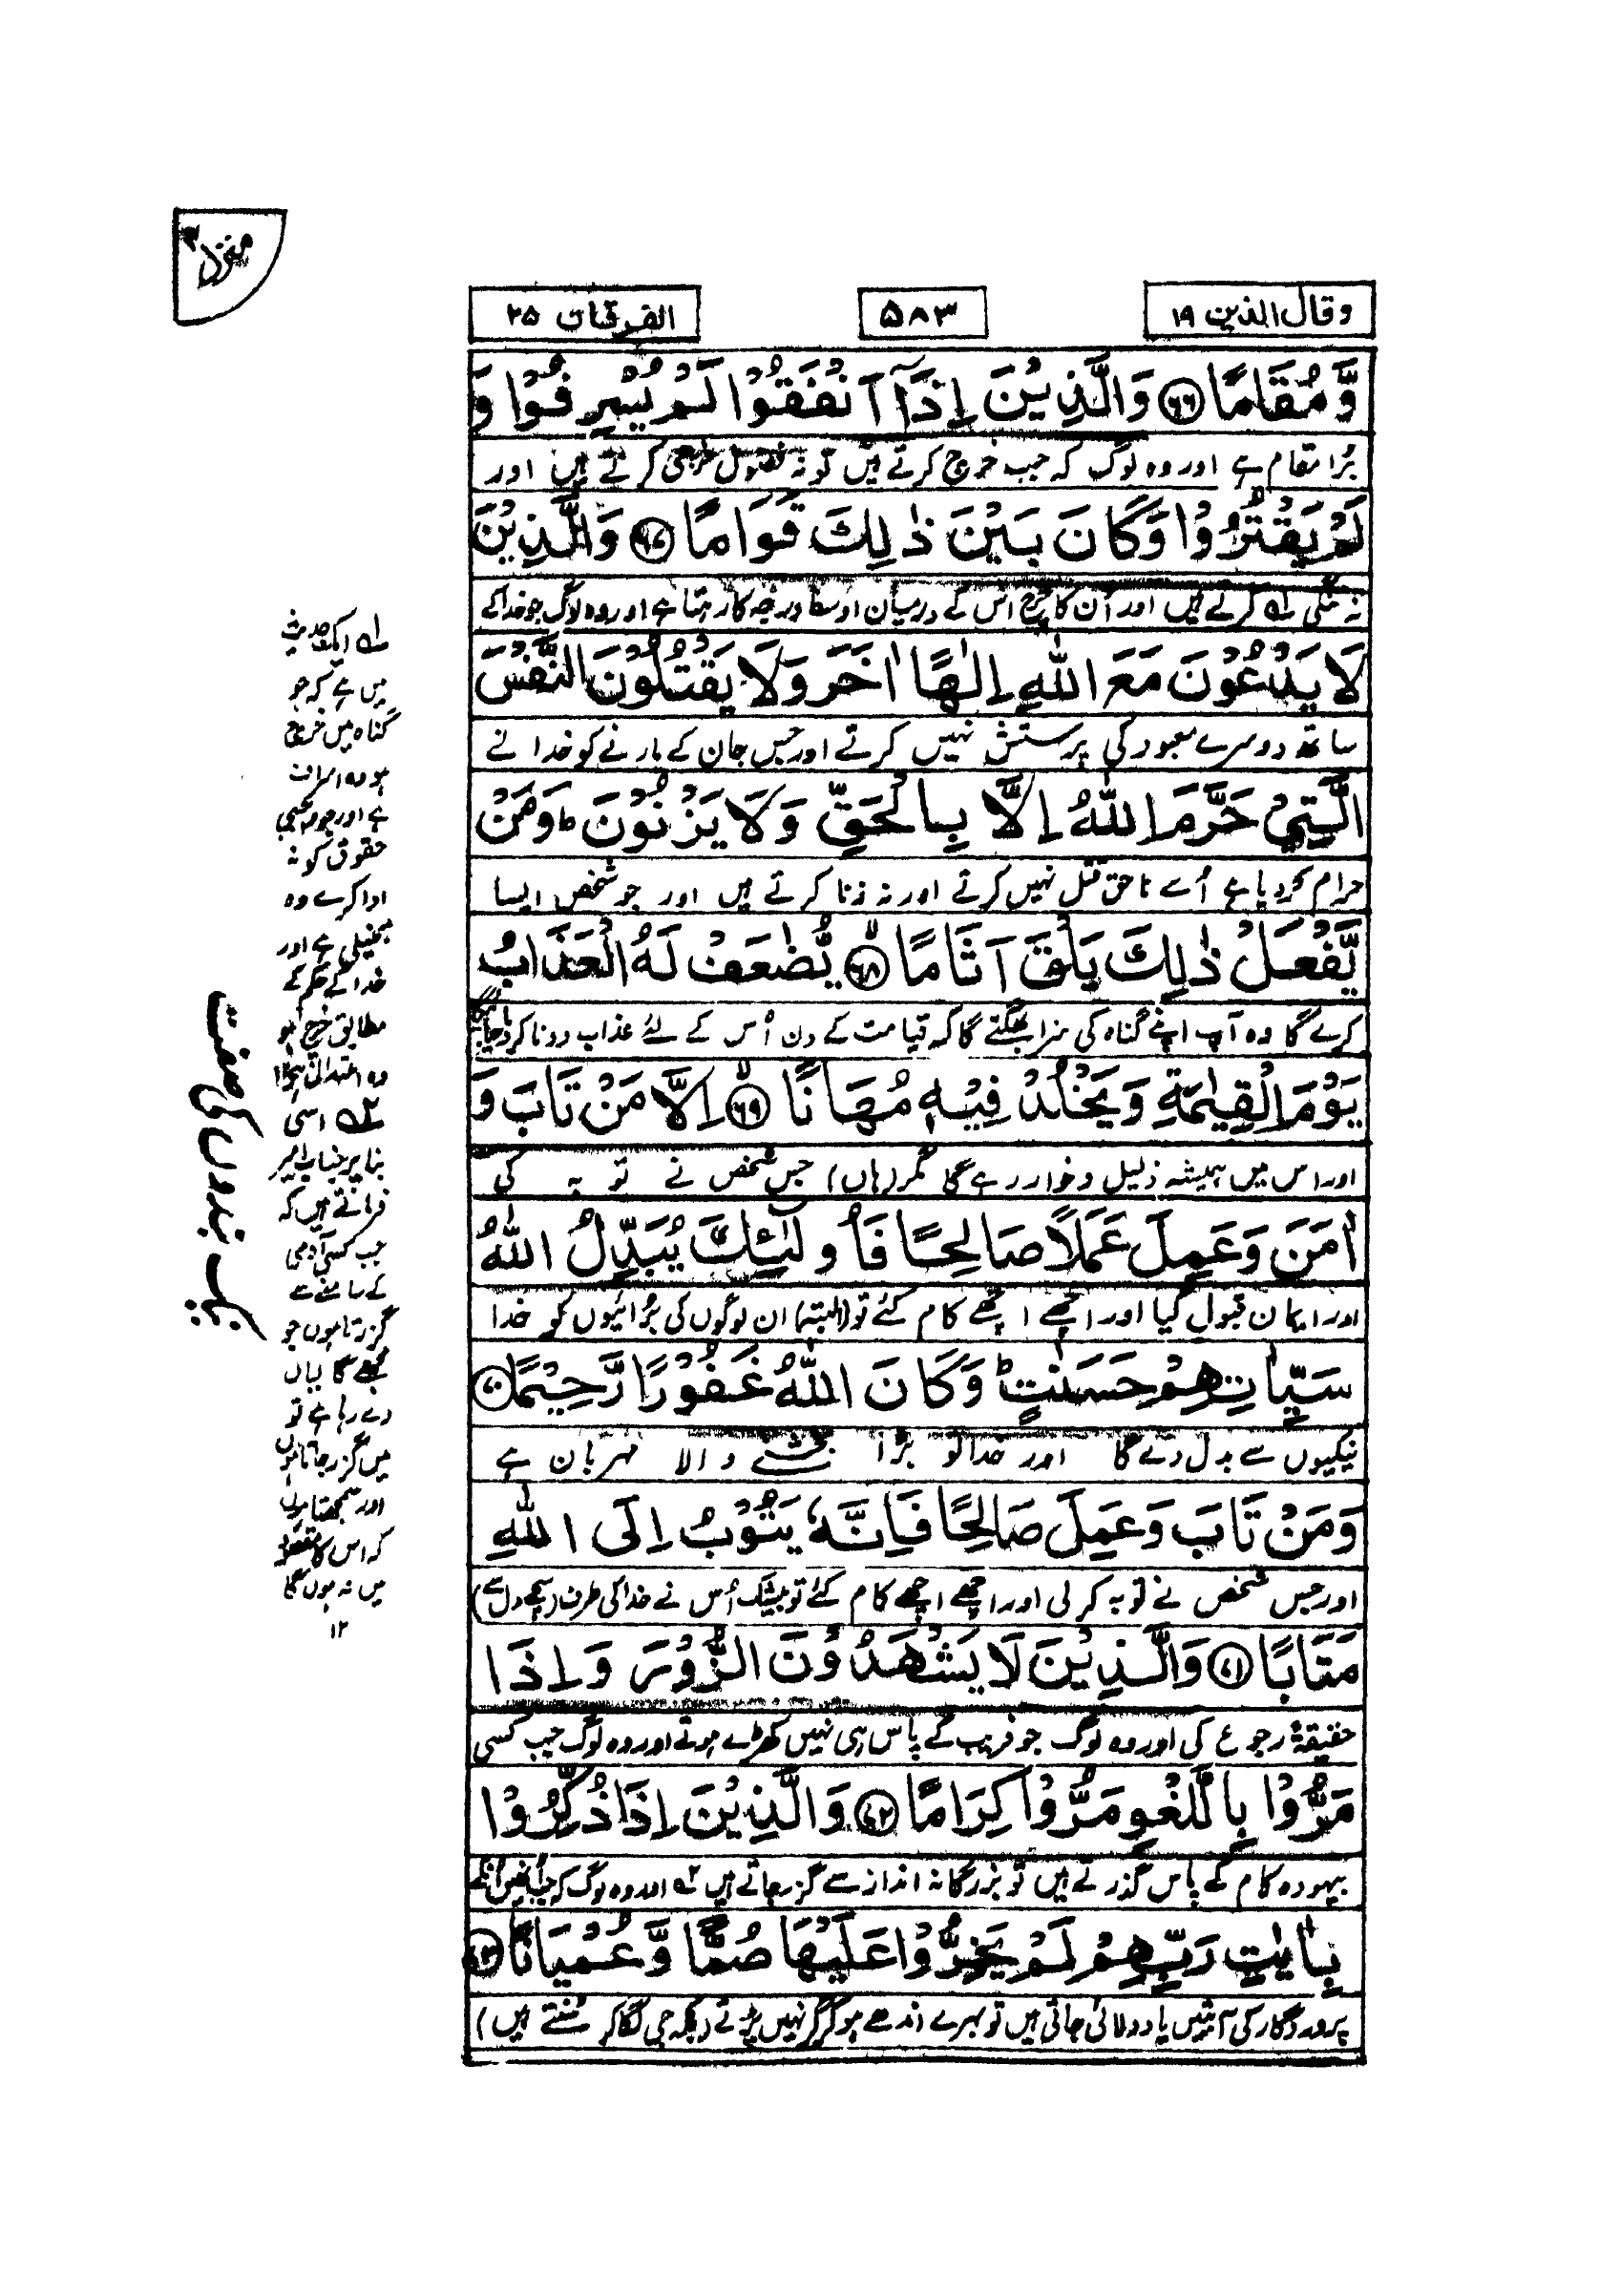 منزل ۴
وقال الذین ۱۹
۵۸۳
الفرقان ۲۵
وَّمُقَامًا ﴿۶۶﴾ وَالَّذِیْنَ اِذَآ اَنْفَقُوْا لَمْ یُسْرِفُوْا وَ
بُرا مقام ہے اور وہ لوگ کہ جب خرچ کرتے ہیں تو نہ فضول خرچی کرتے ہیں اور
لَمْ یَقْتُرُوْا وَكَانَ بَیْنَ ذٰلِكَ قَوَامًا ﴿۶۷﴾ وَالَّذِیْنَ
نہ تنگی ۱ے کرتے ہیں اور اُن کا خرچ اس کے درمیان اوسط درجہ کا رہتا ہے اور وہ لوگ جو خدا کے
لَا یَدْعُوْنَ مَعَ اللّٰهِ اِلٰهًا اٰخَرَ وَلَا یَقْتُلُوْنَ النَّفْسَ
ساتھ دوسرے معبود کی پرستش نہیں کرتے اور جس جان کے مارنے کو خدا نے
الَّتِیْ حَرَّمَ اللّٰهُ اِلَّا بِالْحَقِّ وَلَا یَزْنُوْنَ ؕ وَمَنْ
حرام کر دیا ہے اُسے ناحق قتل نہیں کرتے اور نہ زنا کرتے ہیں اور جو شخص ایسا
یَّفْعَلْ ذٰلِكَ یَلْقَ اَثَامًا ﴿۶۸﴾ یُّضٰعَفْ لَهُ الْعَذَابُ
کرے گا وہ آپ اپنے گناہ کی سزا بھگتے گا کہ قیامت کے دن اُس کے لئے عذاب دونا کر دیا جائیگا
یَوْمَ الْقِیٰمَةِ وَیَخْلُدْ فِیْهٖ مُهَانًا ﴿۶۹﴾ اِلَّا مَنْ تَابَ وَ
اور اس میں ہمیشہ ذلیل و خوار رہے گا مگر (ہاں) جس شخص نے توبہ کی
اٰمَنَ وَعَمِلَ عَمَلًا صَالِحًا فَاُولٰٓئِكَ یُبَدِّلُ اللّٰهُ
اور ایمان قبول کیا اور اچھے اچھے کام کئے تو (البتہ) ان لوگوں کی بُرائیوں کو خدا
سَیِّاٰتِهِمْ حَسَنٰتٍ ؕ وَكَانَ اللّٰهُ غَفُوْرًا رَّحِیْمًا ﴿۷۰﴾
نیکیوں سے بدل دے گا اور خدا تو بڑا بخشنے والا مہربان ہے
وَمَنْ تَابَ وَعَمِلَ صَالِحًا فَاِنَّهٗ یَتُوْبُ اِلَى اللّٰهِ
اور جس شخص نے توبہ کر لی اور اچھے اچھے کام کئے تو بیشک اُس نے خدا کی طرف (سچے دل سے)
مَتَابًا ﴿۷۱﴾ وَالَّذِیْنَ لَا یَشْهَدُوْنَ الزُّوْرَ وَاِذَا
حقیقۃً رجوع کی اور وہ لوگ جو فریب کے پاس ہی نہیں کھڑے ہوتے اور وہ لوگ جب کسی
مَرُّوْا بِاللَّغْوِ مَرُّوْا كِرَامًا ﴿۷۲﴾ وَالَّذِیْنَ اِذَا ذُكِّرُوْا
بیہودہ کام کے پاس گذرتے ہیں تو بزرگانہ انداز سے گزر جاتے ہیں ۲ے اور وہ لوگ کہ جب انہیں انکے
بِاٰیٰتِ رَبِّهِمْ لَمْ یَخِرُّوْا عَلَیْهَا صُمًّا وَّعُمْیَانًا ﴿۷۳﴾
پروردگار کی آیتیں یاد دلائی جاتی ہیں تو بہرے اندھے ہو کر گر نہیں پڑتے (بلکہ جی لگا کر سُنتے ہیں)
۱ے ایک حدیث
میں ہے کہ جو
گناہ میں خرچ
ہو وہ اسراف
ہے اور جو
حقوق کو نہ
ادا کرے وہ
بخیلی ہے اور
خدا کے حکم کے
مطابق خرچ ہو
وہ اعتدال ہے ۱۲
۲ے اسی
بنا پر جناب امیر
فرماتے ہیں کہ
جب کسی آدمی
کے سامنے سے
گزرتا ہوں جو
مجھے گالیاں
دے رہا ہے تو
میں گزر جاتا ہوں
اور سمجھتا ہوں
کہ اس کا مقصود
میں نہ ہوں گا
۱۲
نیک بندوں کی صفت